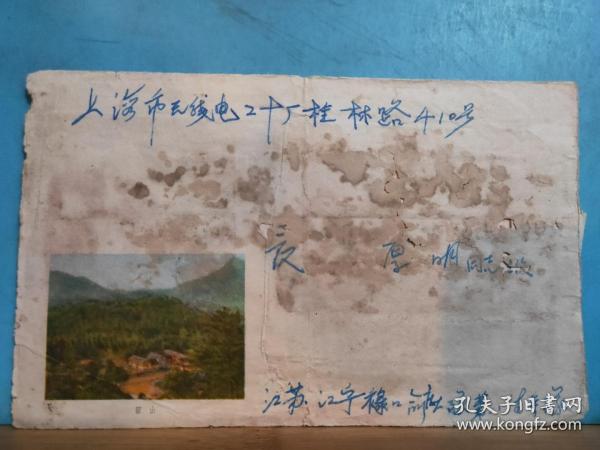 上海市无线电二十厂桂林路410号
厚明同志收
韶山
江苏江宁禄口
孔夫子旧书网
www.kongfz.com